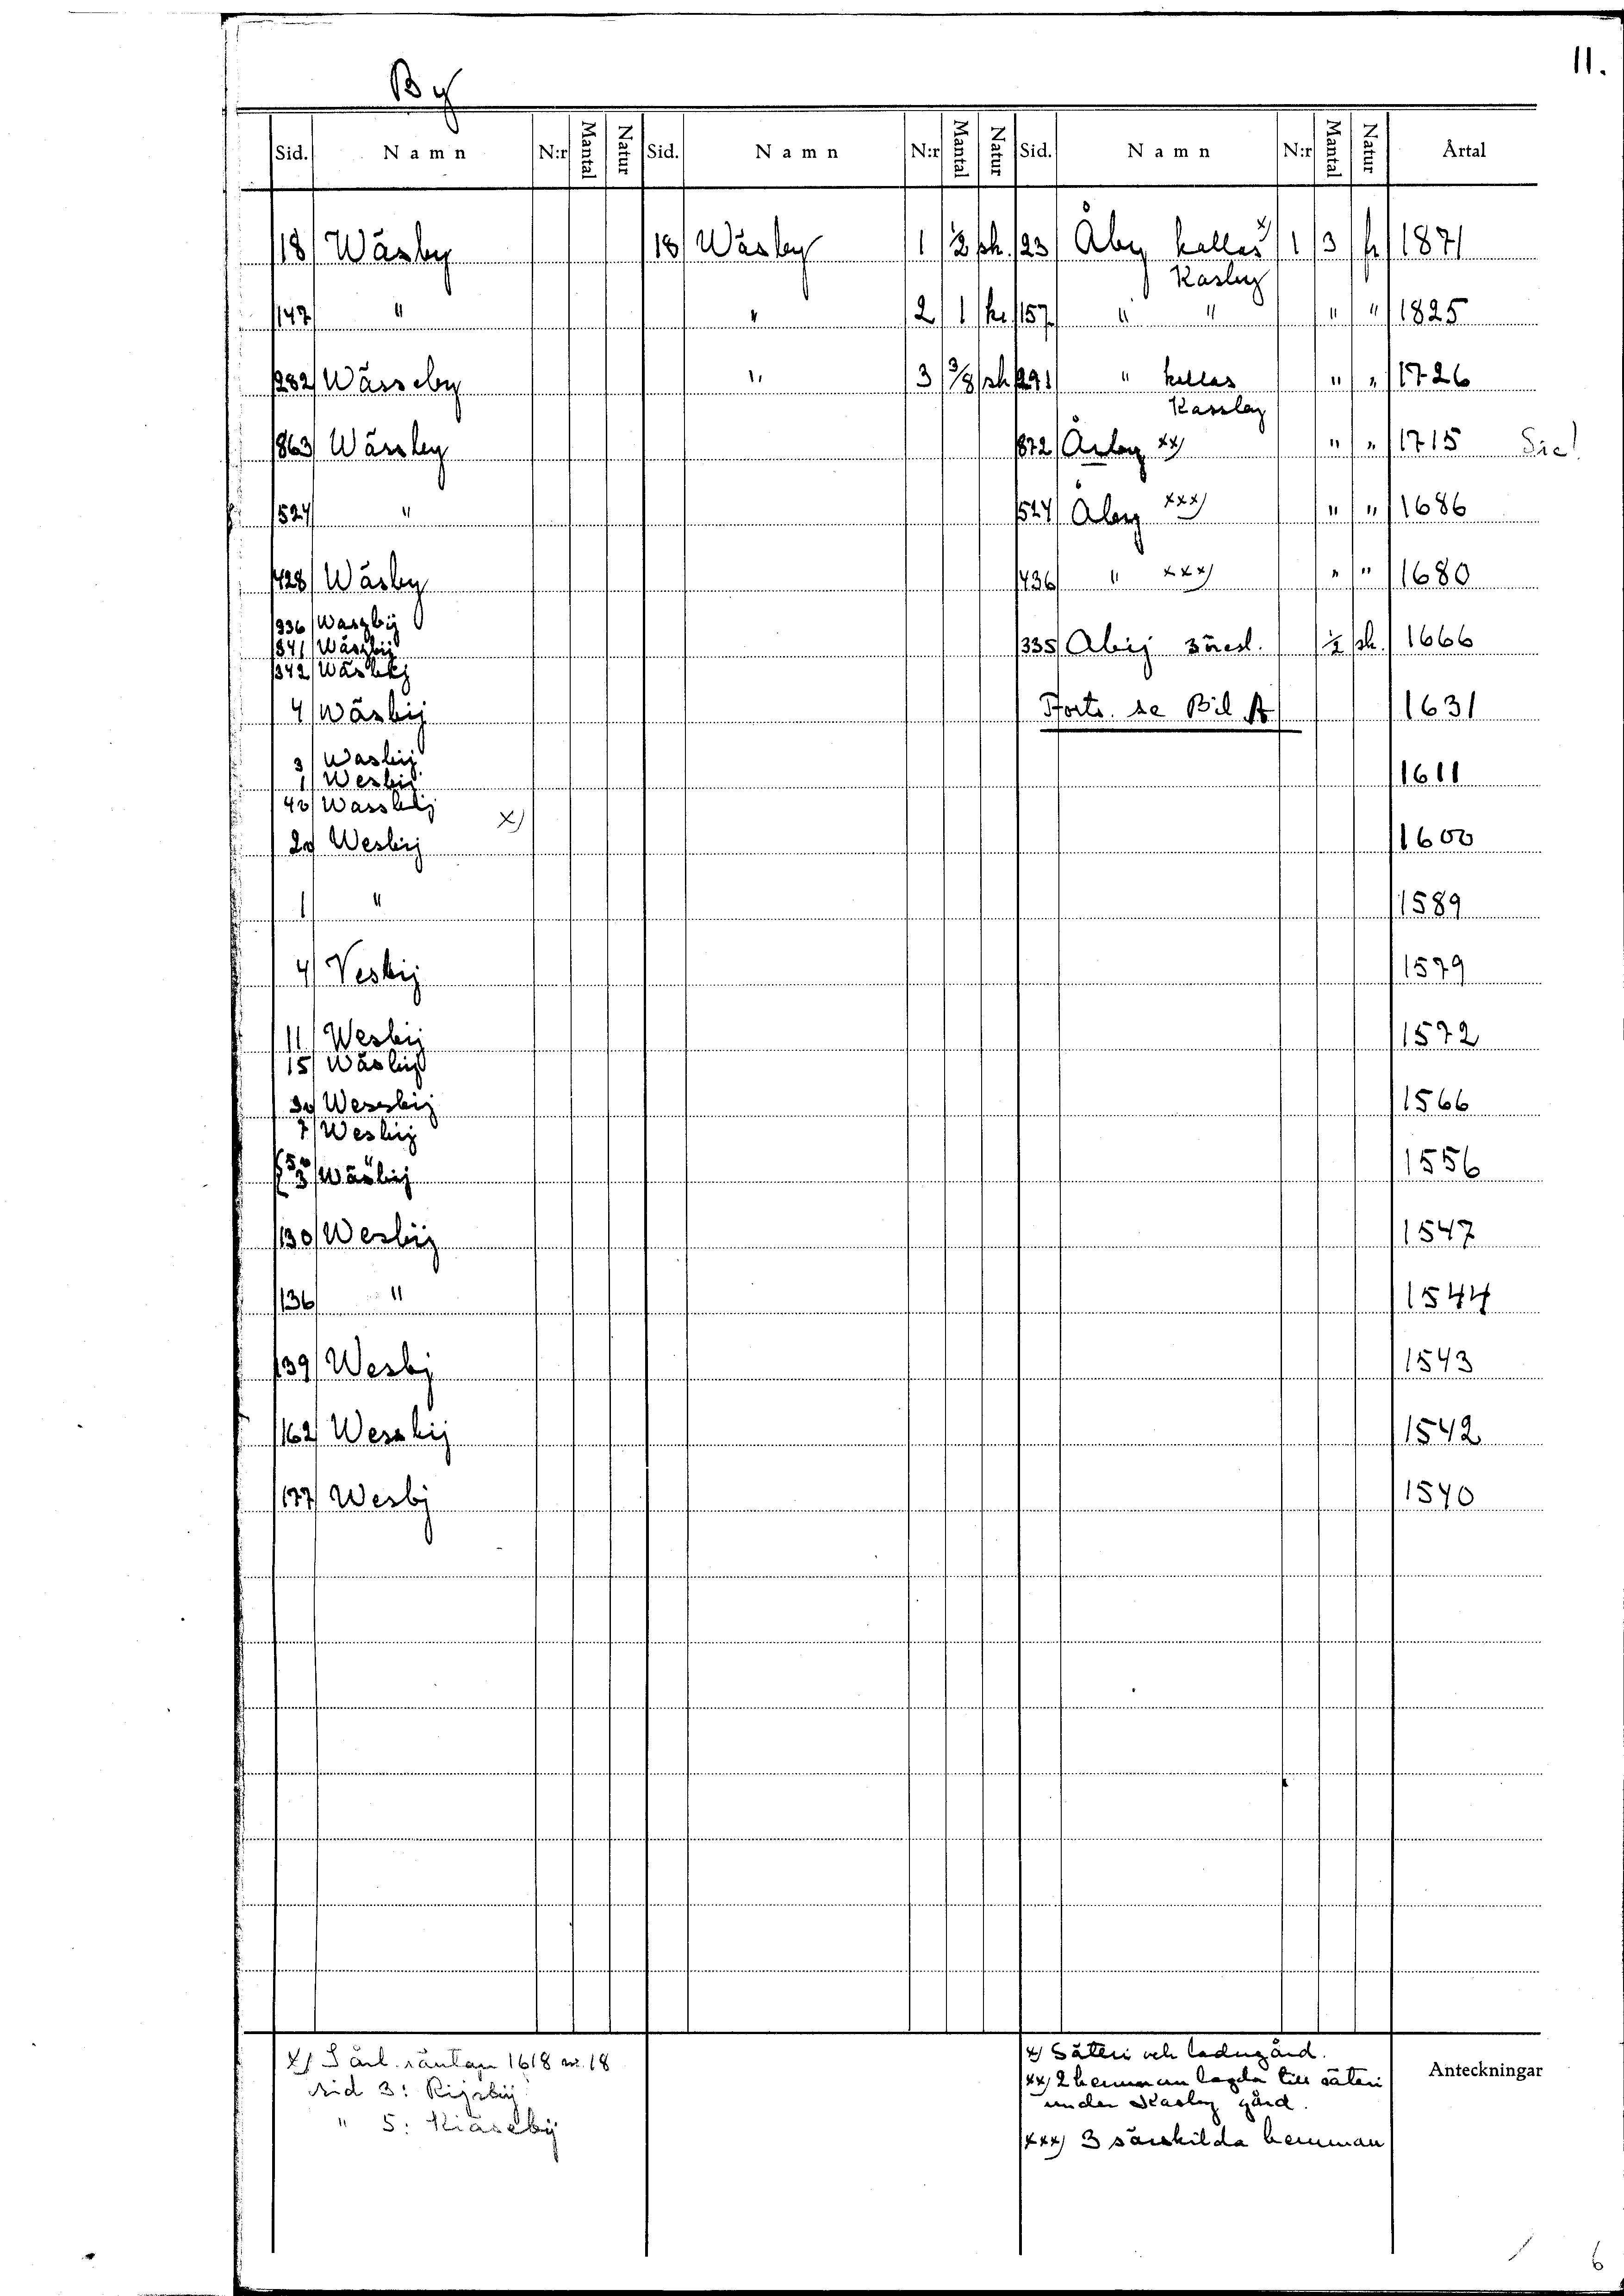 11.
By
Sid. Namn N:r Mantal Natur Sid. Namn N:r Mantal Natur Sid. Namn N:r Mantal Natur Årtal
18 Wäsby 18 Wäsby 1 1/2 sk. 23 Åby kallas x) 1 3 fr 1871
Kasby
147 " " 2 1 kr 157 " " " " 1825
282 Wässeby " 3 3/8 sk 291 " kallas " " 1726
Kassby
863 Wässby 872 Åsby xx) " " 1715 Sic!
524 " 524 Åby xxx) " " 1686
428 Wäsby 436 " xxx) " " 1680
336 Waszbij
341 Wäszbij 335 Abij 3öresl. 1/2 sk. 1666
342 Wäsbij
4 Wäsbij Forts. se Bil A 1631
3 Wasbij
1 Wesbij 1611
4v Wassbij
x)
2v Wesbij 1600
1 " 1589
4 Vesbij 1579
11 Wesbij 1572
15 Wäsbij
3v Wessbij 1566
7 Wesbij
5v "
3 Wäsbij 1556
130 Wesbij 1547
136 " 1544
139 Wesbj 1543
162 Wessbij 1542
177 Wesbj 1540
x) I årl. räntan 1618 nr. 18
sid 3: Rijsbij
" 5: Kiäsebij
x) Säteri och ladugård.
xx) 2 hemman lagda till säteri
under Kasby gård.
xxx) 3 särskilda hemman
Anteckningar
6